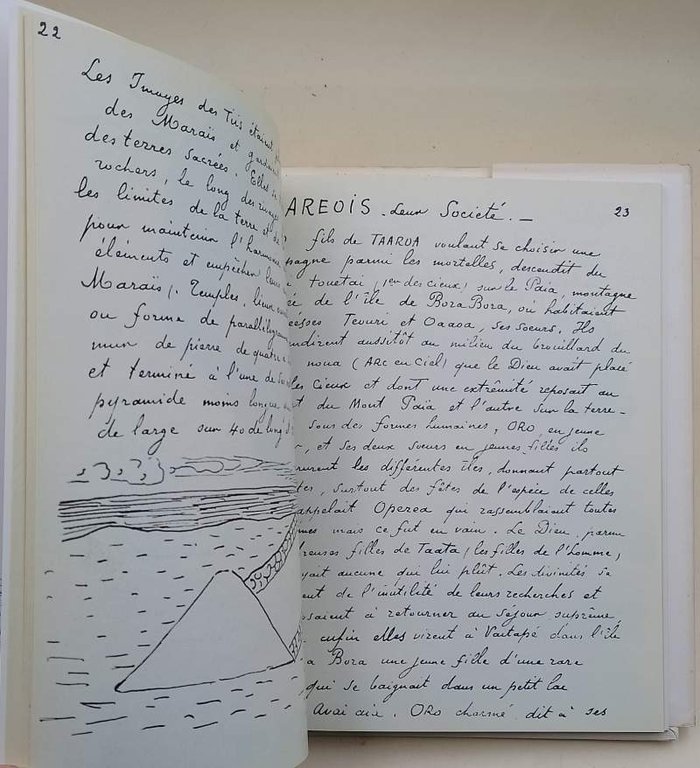 22
Les Images des Tiis étaient
des Maraïs et gardaient
des terres sacrées. Elles
rochers, le long des rivages
les limites de la terre et de
pour maintenir l'harmonie
éléments et empêcher leurs
Maraïs). Temples, lieux
ou forme de parallélogramme
mur de pierre de quatre
et terminé à l'une de ses
pyramide moins longue
de large sur 40 de long
AREOIS - Leur Société. - 23
fils de TAAROA voulant se choisir une
pagne parmi les mortelles, descendit du
touetai, (1er des cieux) sur le Païa, montagne
ée de l'île de Bora Bora, où habitaient
éesses Teouri et Oaaoa, ses soeurs. Ils
ndirent aussitôt au milieu du brouillard du
noua (Arc en Ciel) que le Dieu avait placé
les Cieux et dont une extrêmité reposait au
t du Mont Païa et l'autre sur la terre -
sous des formes humaines, ORO, en jeune
, et ses deux soeurs en jeunes filles ils
rurent les différentes îles, donnant partout
tes, surtout des fêtes de l'espèce de celles
appelait Operea qui rassemblaient toutes
mes mais ce fut en vain. Le Dieu, parmi
breuses filles de Taata, (les filles de l'homme,
yait aucune qui lui plût. Les divinités se
ent de l'inutilité de leurs recherches et
osaient à retourner au séjour suprême,
enfin elles virent à Vaitapé dans l'île
a Bora une jeune fille d'une rare
qui se baignait dans un petit lac
Avai aia. ORO charmé dit à ses